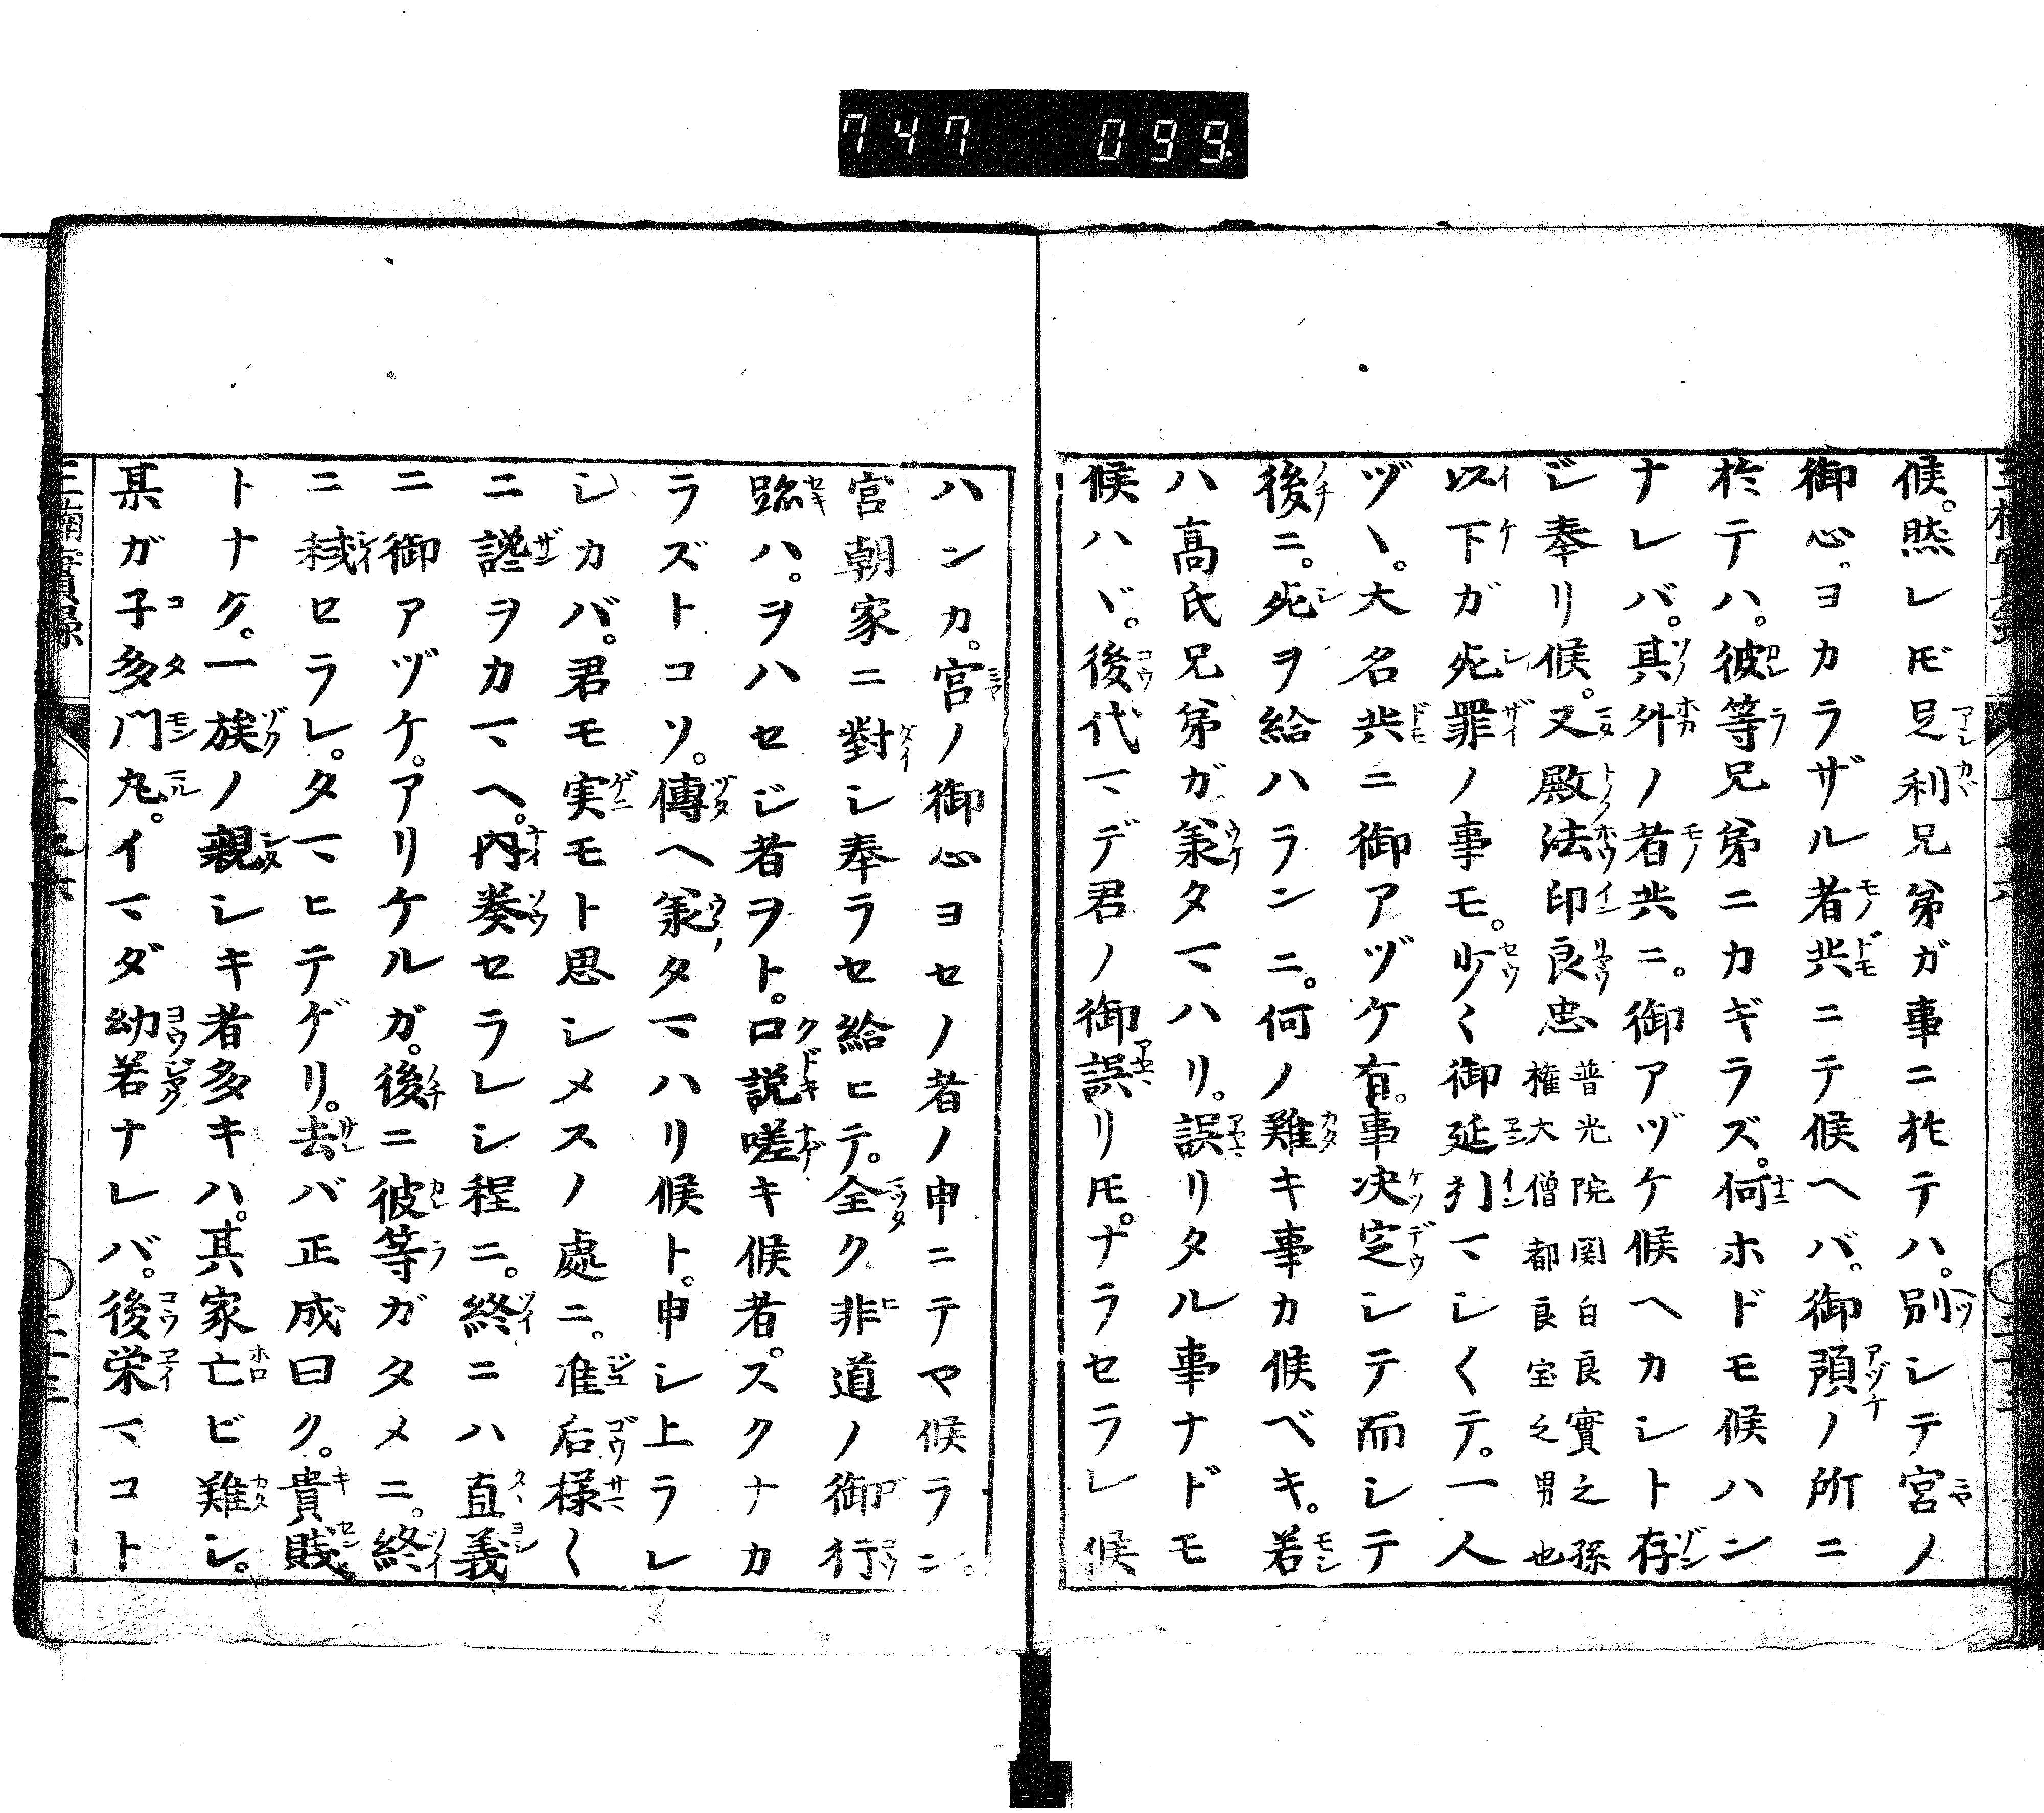 747 099
候。然レ𪜈足利兄弟ガ事ニ於テハ。別シテ宮ノ
御心。ヨカラザル者共ニテ候ヘバ。御預ノ所ニ
於テハ。彼等兄弟ニカギラズ。何ホドモ候ハン
ナレバ。其外ノ者共ニ。御アヅケ候ヘカシト存
ジ奉リ候。又殿法印良忠普光院関白良實之孫権大僧都良宝之男也
以下ガ死罪ノ事モ。少〱御延引マシ〱テ。一人
ヅヽ。大名共ニ御アヅケ有。事决定シテ而シテ
後ニ。死ヲ給ハランニ。何ノ難キ事カ候ベキ。若
ハ高氏兄弟ガ承タマハリ。誤リタル事ナドモ
候ハヾ。後代マデ君ノ御誤リ𪜈。ナラセラレ候
ハンカ。宮ノ御心ヨセノ者ノ申ニテヤ候ラン。
宮朝家ニ對シ奉ラセ給ヒテ。全ク非道ノ御行
跡ハ。ヲハセジ者ヲト。口説嗟キ候者。スクナカ
ラズトコソ。傳ヘ承タマハリ候ト。申シ上ラレ
シカバ。君モ実モト思シメスノ處ニ。准后様〱
ニ讒ヲカマヘ。内奏セラレシ程ニ。終ニハ直義
ニ御アヅケ。アリケルガ。後ニ彼等ガタメニ。終
ニ弑セラレ。タマヒテゲリ。去バ正成曰ク。貴賎
トナク。一族ノ親シキ者多キハ。其家亡ビ難シ。
某ガ子多門丸。イマダ幼若ナレバ。後栄マコト